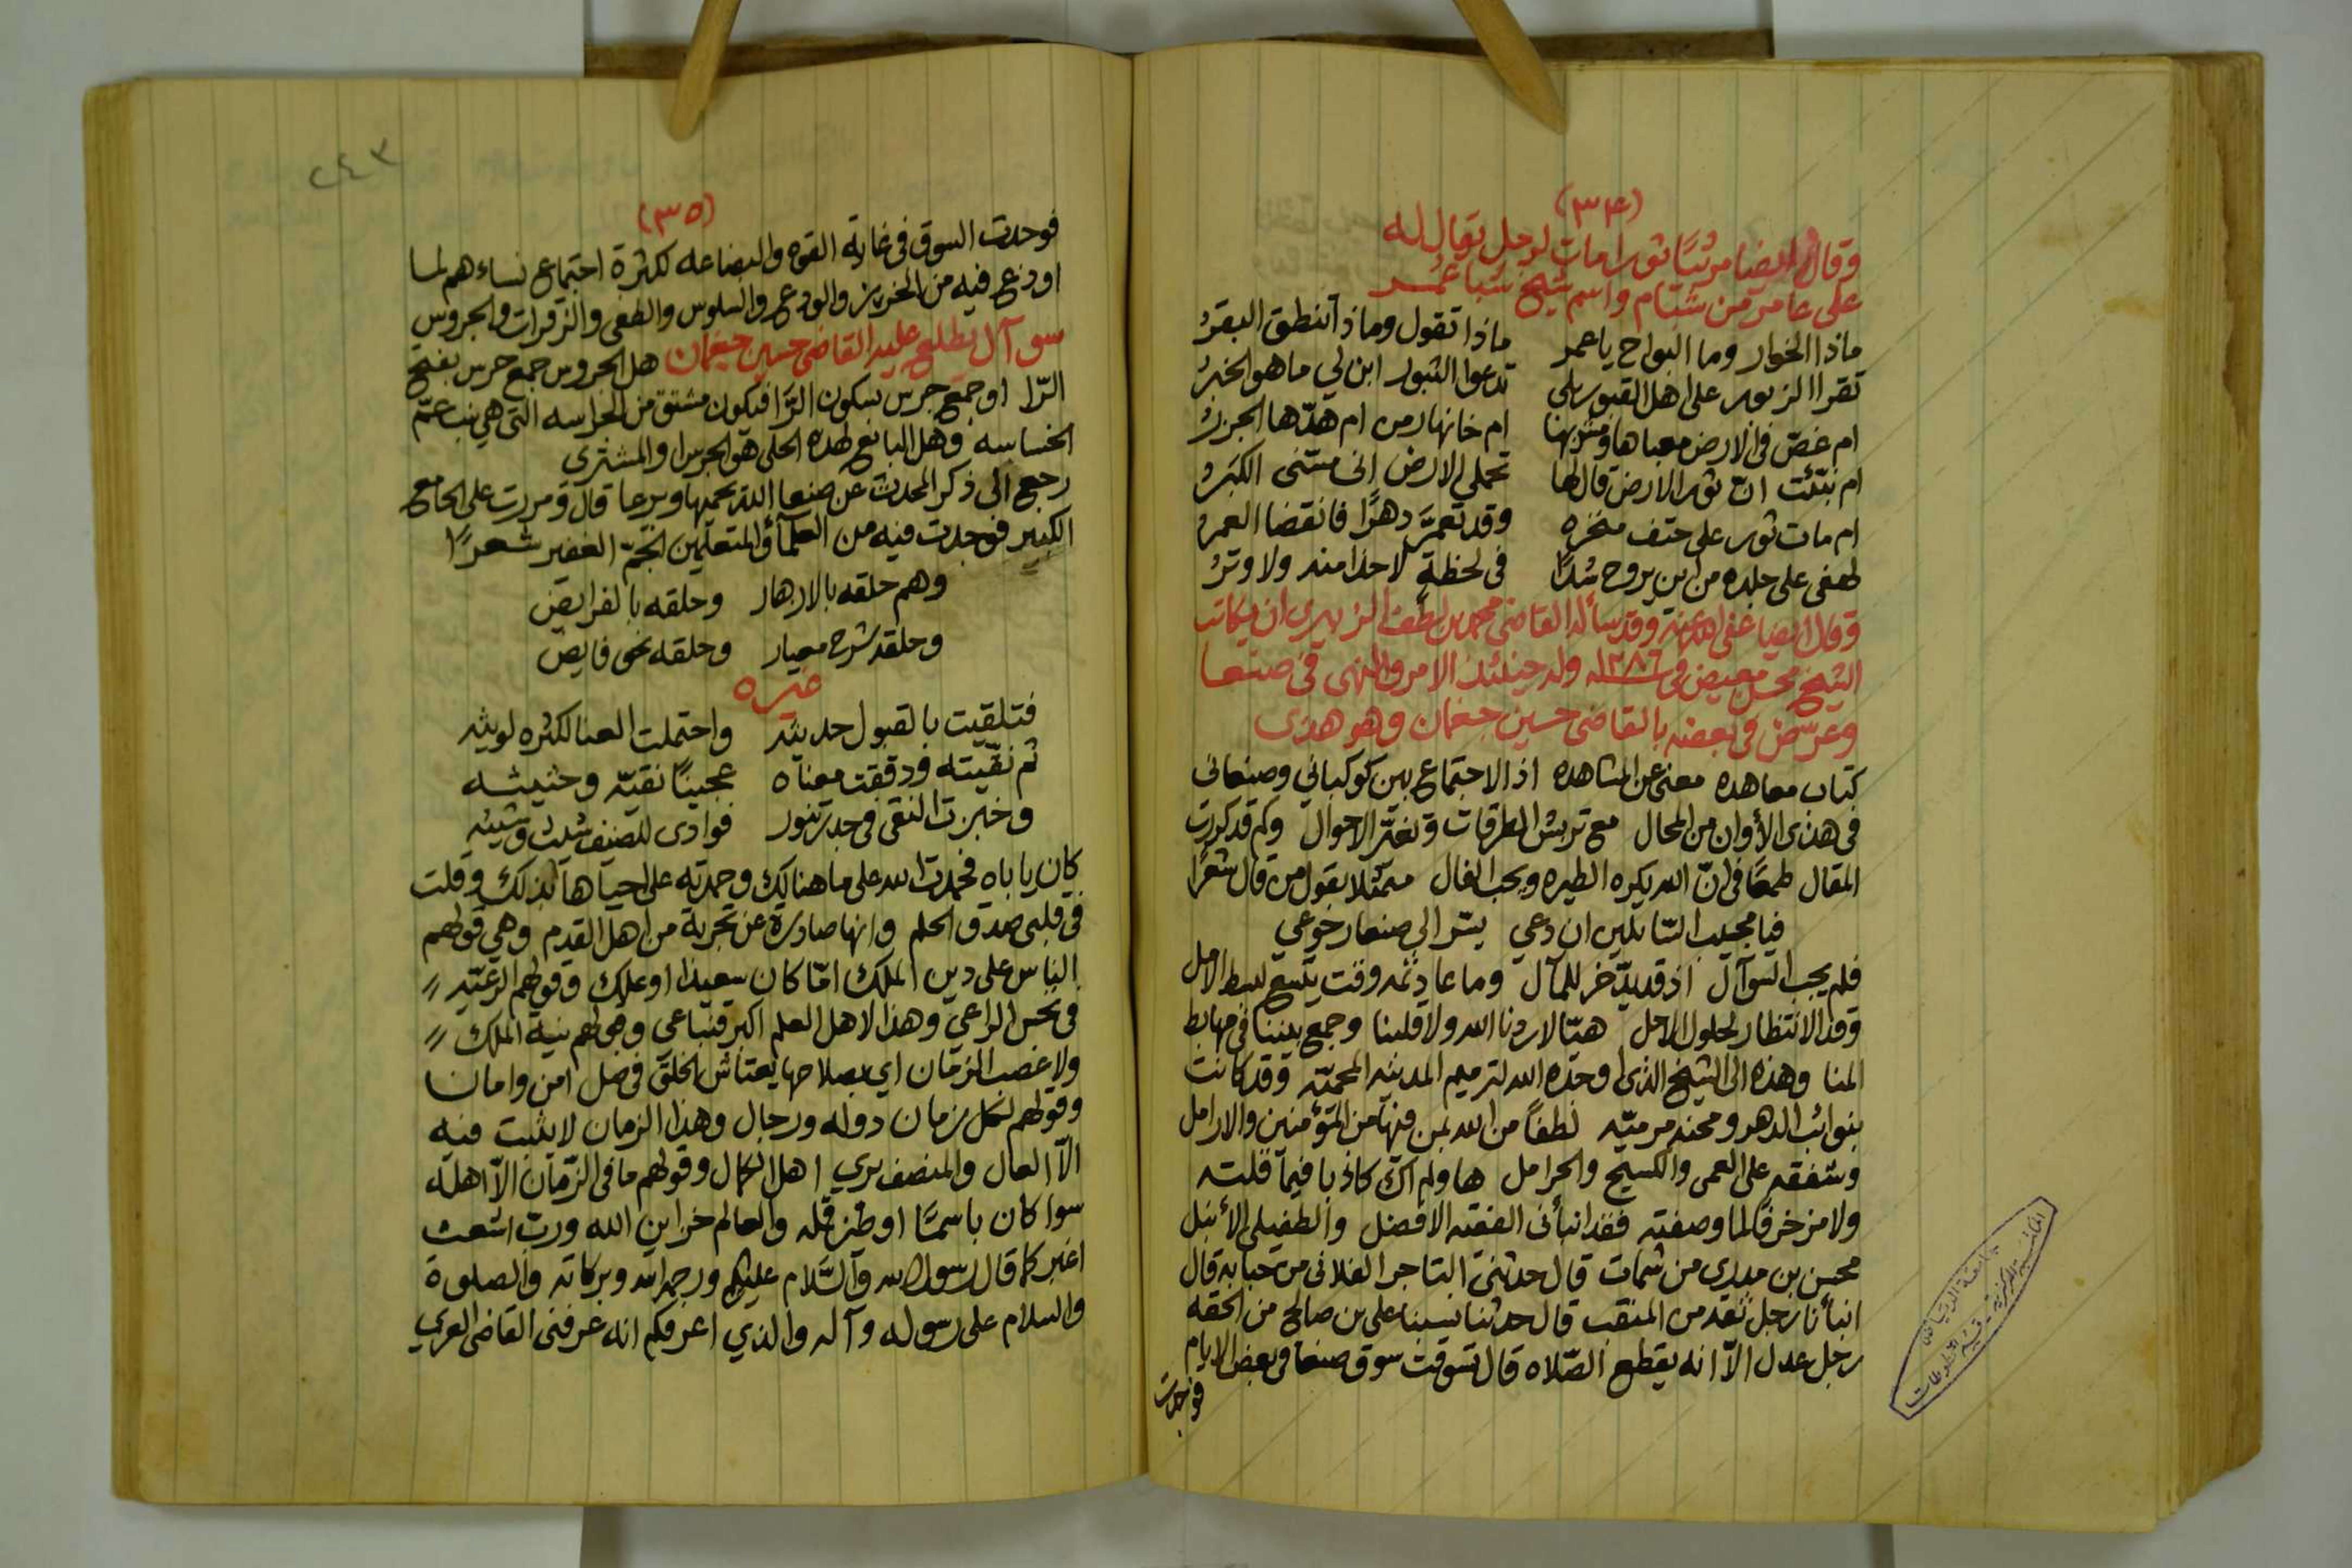 (٣٤)
وقال ايضا مرثيًا ثورا مات لرجل يقال له
على عامر من شبام واسم شيخ شبا عمر
ماذا الخوار وما البواح يا عمر ماذا تقول وماذا تنطق البقرُ
تقرا الزبور على اهل القبور بلى تدعوا الثبور ابن لي ما هو الخبرُ
ام غصّ في الارض معباها ومشربها ام خانها رمن ام هدّها الجزرُ
ام نبّئت انّ ثور الارض قال لها تحملي الارض إني مسّني الكبَرُ
ام مات ثور على حتف منخره وقد تعمَّر دهرًا فانقضا العمر
لهفى على جلده من اين يروح سُدًا في لحظةٍ لا حذا منه ولا وترُ
وقال ايضا عفى الله عنه وقد سأله القاضي محمد بن لطف الزبيري ان يكاتب
الشيخ محسن معيض في سنة ١٢٨٦ وله حينئذ الامر والنهى في صنعا
وعرّض في بعضه بالقاضي حسين جغمان وهو هذى
كتاب معاهده مغني عن المشاهده اذ الاجتماع بين كوكباني وصنعاني
في هذى الأوان من المحال مع تربش الطرقات وتغيّر الاحوال وكم قد كررت
المقال طمعًا في انّ الله يكره الطيره ويحب الفال متمثّلا بقول من قال شعرًا
فيا مجيب السّائلين ان دعي يسّر الى صنعا رجوعي
فلم يجب السوآل اذ قد يدّخر للمآل وما عاد ثمه وقت يتّسع لبسط الامل
وقد الانتظار لحلول الاجل هيّا لا ردنا الله ولا قلبنا وجمع بيننا في مهابط
المنا وهذه الى الشيخ الذى اوحده الله لترميم المدينه المحميّه وقد كانت
بنوائب الدهر ومحنه مرميّه لطفًا من الله بمن فيها من المؤمنين والارامل
وشفقه على العمى والكسيح والحرامل ها ولم اك كاذبا فيما قلته
ولا مزخرفًا لما وصفته فقد انبأنى الفقيه الافضل والطفيلى الأنبل
محسن بن مديري من شمات قال حدثني التاجر الفلانى من حبابه قال
انبأنا رجل ثقه من المنقب قال حدثنا سيبنا على بن صالح من الحقه
رجل عدل الاّ انه يقطع الصّلاه قال تسوقت سوق صنعا في بعض الايام
فوجدت
المكتبة المركزية قسم المخطوطات
جامعة الرياض
٢٤٣
(٣٥)
فوجدت السوق في غاية القوه والبضاعه لكثرة اجتماع نساءهم لما
اودع فيه من الخريز والودع والسلوس والطفى والزقرات والجروس
سوآل يطلع عليه القاضي حسين جغمان هل الجروس جمع جرس بفتح
الرّا او جمع جرس بسكون الرّا فيكون مشتق من الخراسه التى هي بنت عمّ
الخساسه وهل البائع لهذه الحلى هو الجرس او المشترى
رجع الى ذكر المحدث عن صنعا الله يحميها ويرعا قال ومررت على الجامع
الكبير فوجدت فيه من العلمآ والمتعلّمين الجمّ الغفير شعرًا
وهم حلقه بالازهار وحلقه بالفرايض
وحلقه شرح معيار وحلقه نحى فايض
غيره
فتلقيت بالقبول حديثه واحتملت العنا لكثره لويثه
ثم نقّيته ودققت معناه عجينًا نقيّه وخثيثه
وخبزت النقى في جدر تنور فوادى للضيف شيت وشيئه
كان ياباه فحمدت الله على ما هنالك وحمدته على احياها بذلك وقلت
في قلبى صدق الحلم وانها صادرة عن تجربة من اهل القدم وهي قولهم
الناس على دين الملك امّا كان سعيدا او علك وقولهم الرعيّه //
في بخس الراعي وهذا لاهل العلم اكبر فنباعى وقولهم نية الملك //
ولا غصب الزمان اي بصلاحها يعتاش الخلق في ضل امن وامانا
وقولهم لكل زمان دوله ورجال وهذا الزمان لا يثبت فيه
الاّ العال والمنصف يري اهل الكمال وقولهم ما في الزّمان الاّ اهله
سوا كان باسمًا او طنز قله والعالم خزاين الله وربّ اشعث
اغبر كما قال رسول الله والسَّلام عليكم ورحمة الله وبركاته والصلوة
والسلام على رسوله وآله والذي اعرفكم انه عرفنى القاضى العربي